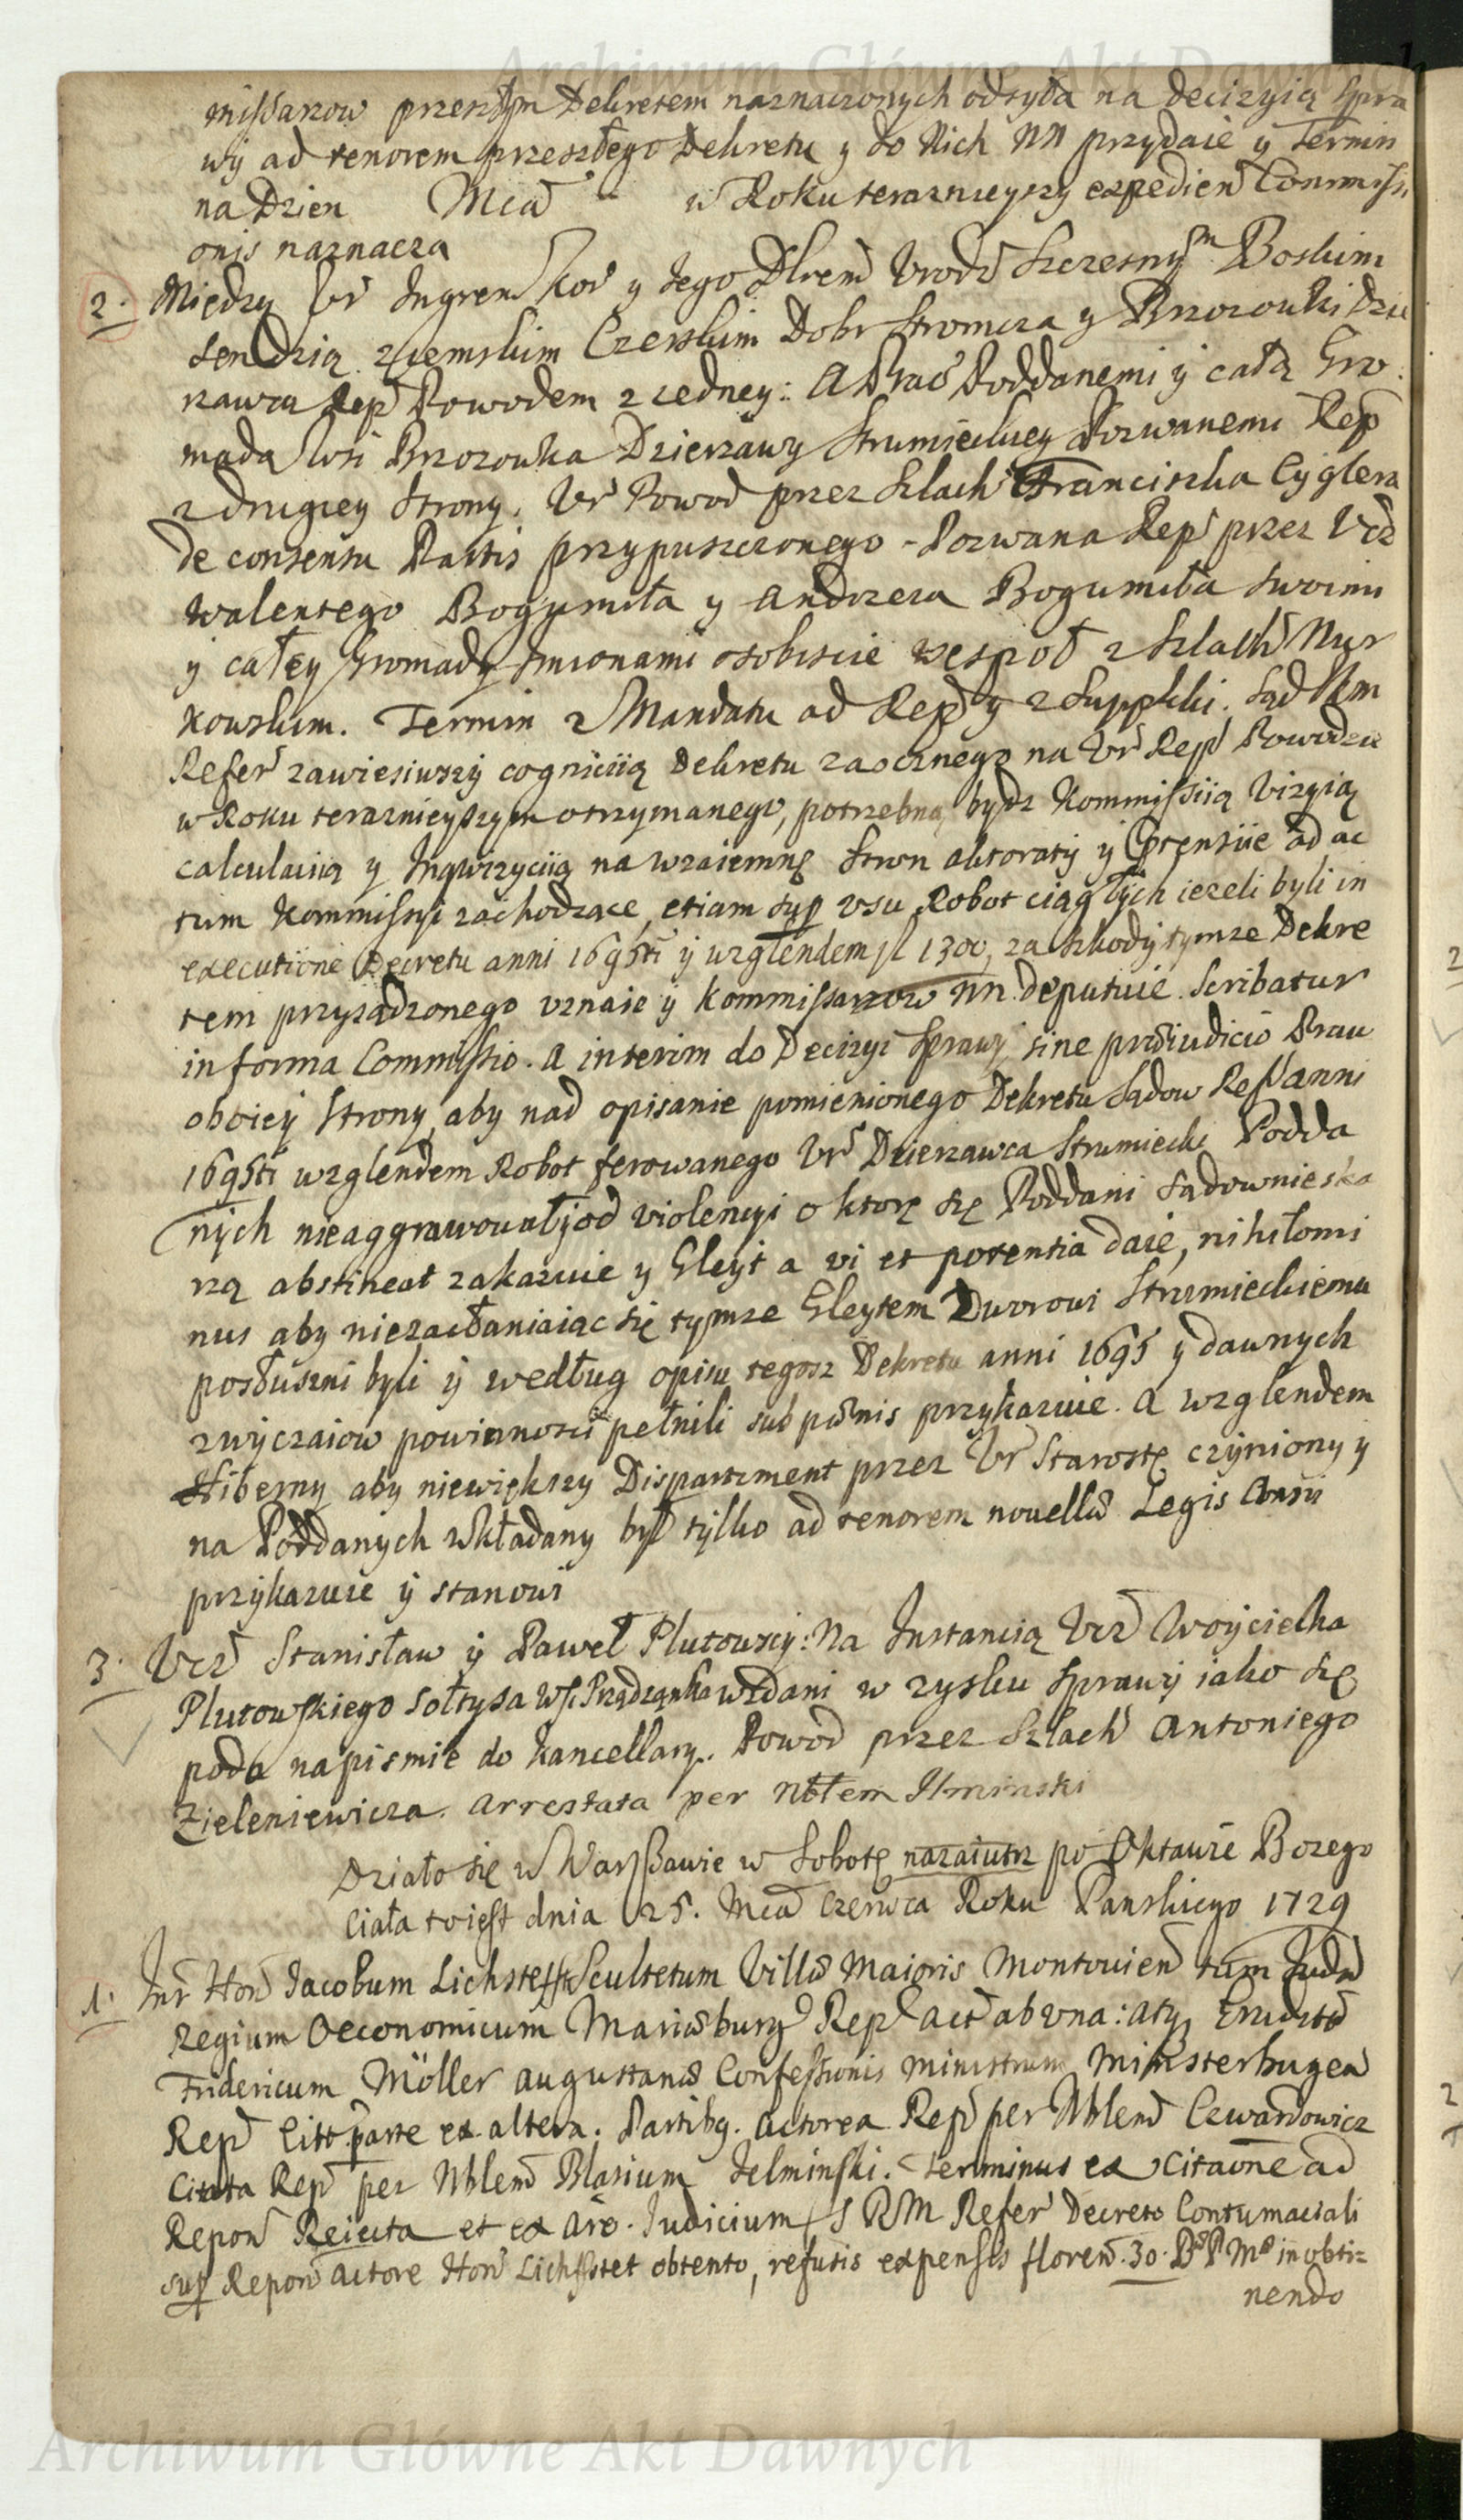 Archiwum Główne Akt Dawnych
missarzow przeszłym Dekretem naznaczonych odsyła na decizyią spra
wy ad tenorem przeszłego Dekretu y do Nich NN przydaie y Termin
na Dzien Mca w Roku teraznieyszy expedien Commissi
onis naznacza
2. Między Ur Ingren Kor y Jego Dlrem Urodz Szczesnym Boskim
Sendzią ziemskim Czerskim Dobr Stromcza y Brzozowki Dzie
rzawcą Rep Powodem z iedney: A Prac Poddanemi y całą Gro
madą Wsi Brzozowka Dzierzawy Strumieckiey Pozwanemi Rep
z drugiey strony. Ur Powod przez Szlach Franciszka Cyglera
de consensu Partis przypuszczonego - Pozwana Rep przez Ucz
Walentego Bogumiła y Andrzeia Bogumiła swoimi
y całey Gromady Imionami osobiscie wespoł z Szlach Mys
kowskim. Termin z Mandatu ad Rep y z Supplki. Sąd NKm
Refer zawiesiwszy cognicią Dekretu zaocznego na Ur Rep Powodzie
w Roku teraznieyszym otrzymanego, potrzebną bydz Kommissiią Vizyią
calculaiią y Inqwizyciią na wzaiemnę stron aktoraty y Prtensiie ad ac
tum Kommissyi zachodzące, etiam sup usu Robot ciągłych iezeli byli in
executione Decretu anni 1695ti y wzglendem fl 1300, za szkody tymze Dekre
tem przysądzonego uznaie y Kommissarzow NN. deputuie. Scribatur
in forma Commissio. A interim do Decizyi sprawy sine prdiudicio Praw
oboiey strony, aby nad opisanie pomienionego Dekretu Sądow Rep anni
1695ti wzglendem Robot ferowanego Ur Dzierzawca Strumiecki Podda
nych nieaggrawował, y od violencyi o ktorę się Poddani sądownie ska
rzą abstineat zakazuie y Gleyt a vi et potentia daie, nihilomi
nus aby niezacłaniaiąc się tymze Gleytem Dworowi Strumieckiemu
posłuszni byli y według opisu tegosz Dekretu anni 1695 y dawnych
zwyczaiow powinnosci pełnili sub pœnis przykazuie. A wzglendem
Hiberny aby niewiększy Dispartiment przez Ur Starostę czyniony y
na Poddanych wkładany był tylko ad tenorem novellæ Legis Anni
przykazuie y stanowi
3. Ucz Stanisław y Paweł Plutowscy: Na Instancią Ucz Woyciecha
Plutowskiego Sołtysa Wsi Prądzanka wzdani w zysku sprawy iako się
poda na pismie do Kancellary. Powod przez Szlach Antoniego
Zieleniewicza. Arrestata per Nblem Ilminski
Działo się w Warszawie w Sobotę nazaiutrz po Oktawie Bozego
Ciała to iest dnia 25. Mca Czerwca Roku Panskiego 1729
1. Intr Hon Jacobum Lichstett Scultetum Villæ Maioris Montovien tum Juda
Regium Oeconomicum Mariæburg Rep act ab una: atq Erudito
Fridericum Möller Augustanæ Confessionis ministrum Minsterhugea
Rep Citt parte ex altera. Partibg. Actorea Rep per Nblem Czwardowicz
Citata Rep per Nblem Blasium Jelminski. Terminus ex Citaone ad
Repon Reiecta et ex Aro. Judicium S R M Refer Decreto Contumaciali
sup Repon Actore Hon Lichstet obtento, refusis expensis floren. 30. in obti=
nendo
Archiwum Główne Akt Dawnych